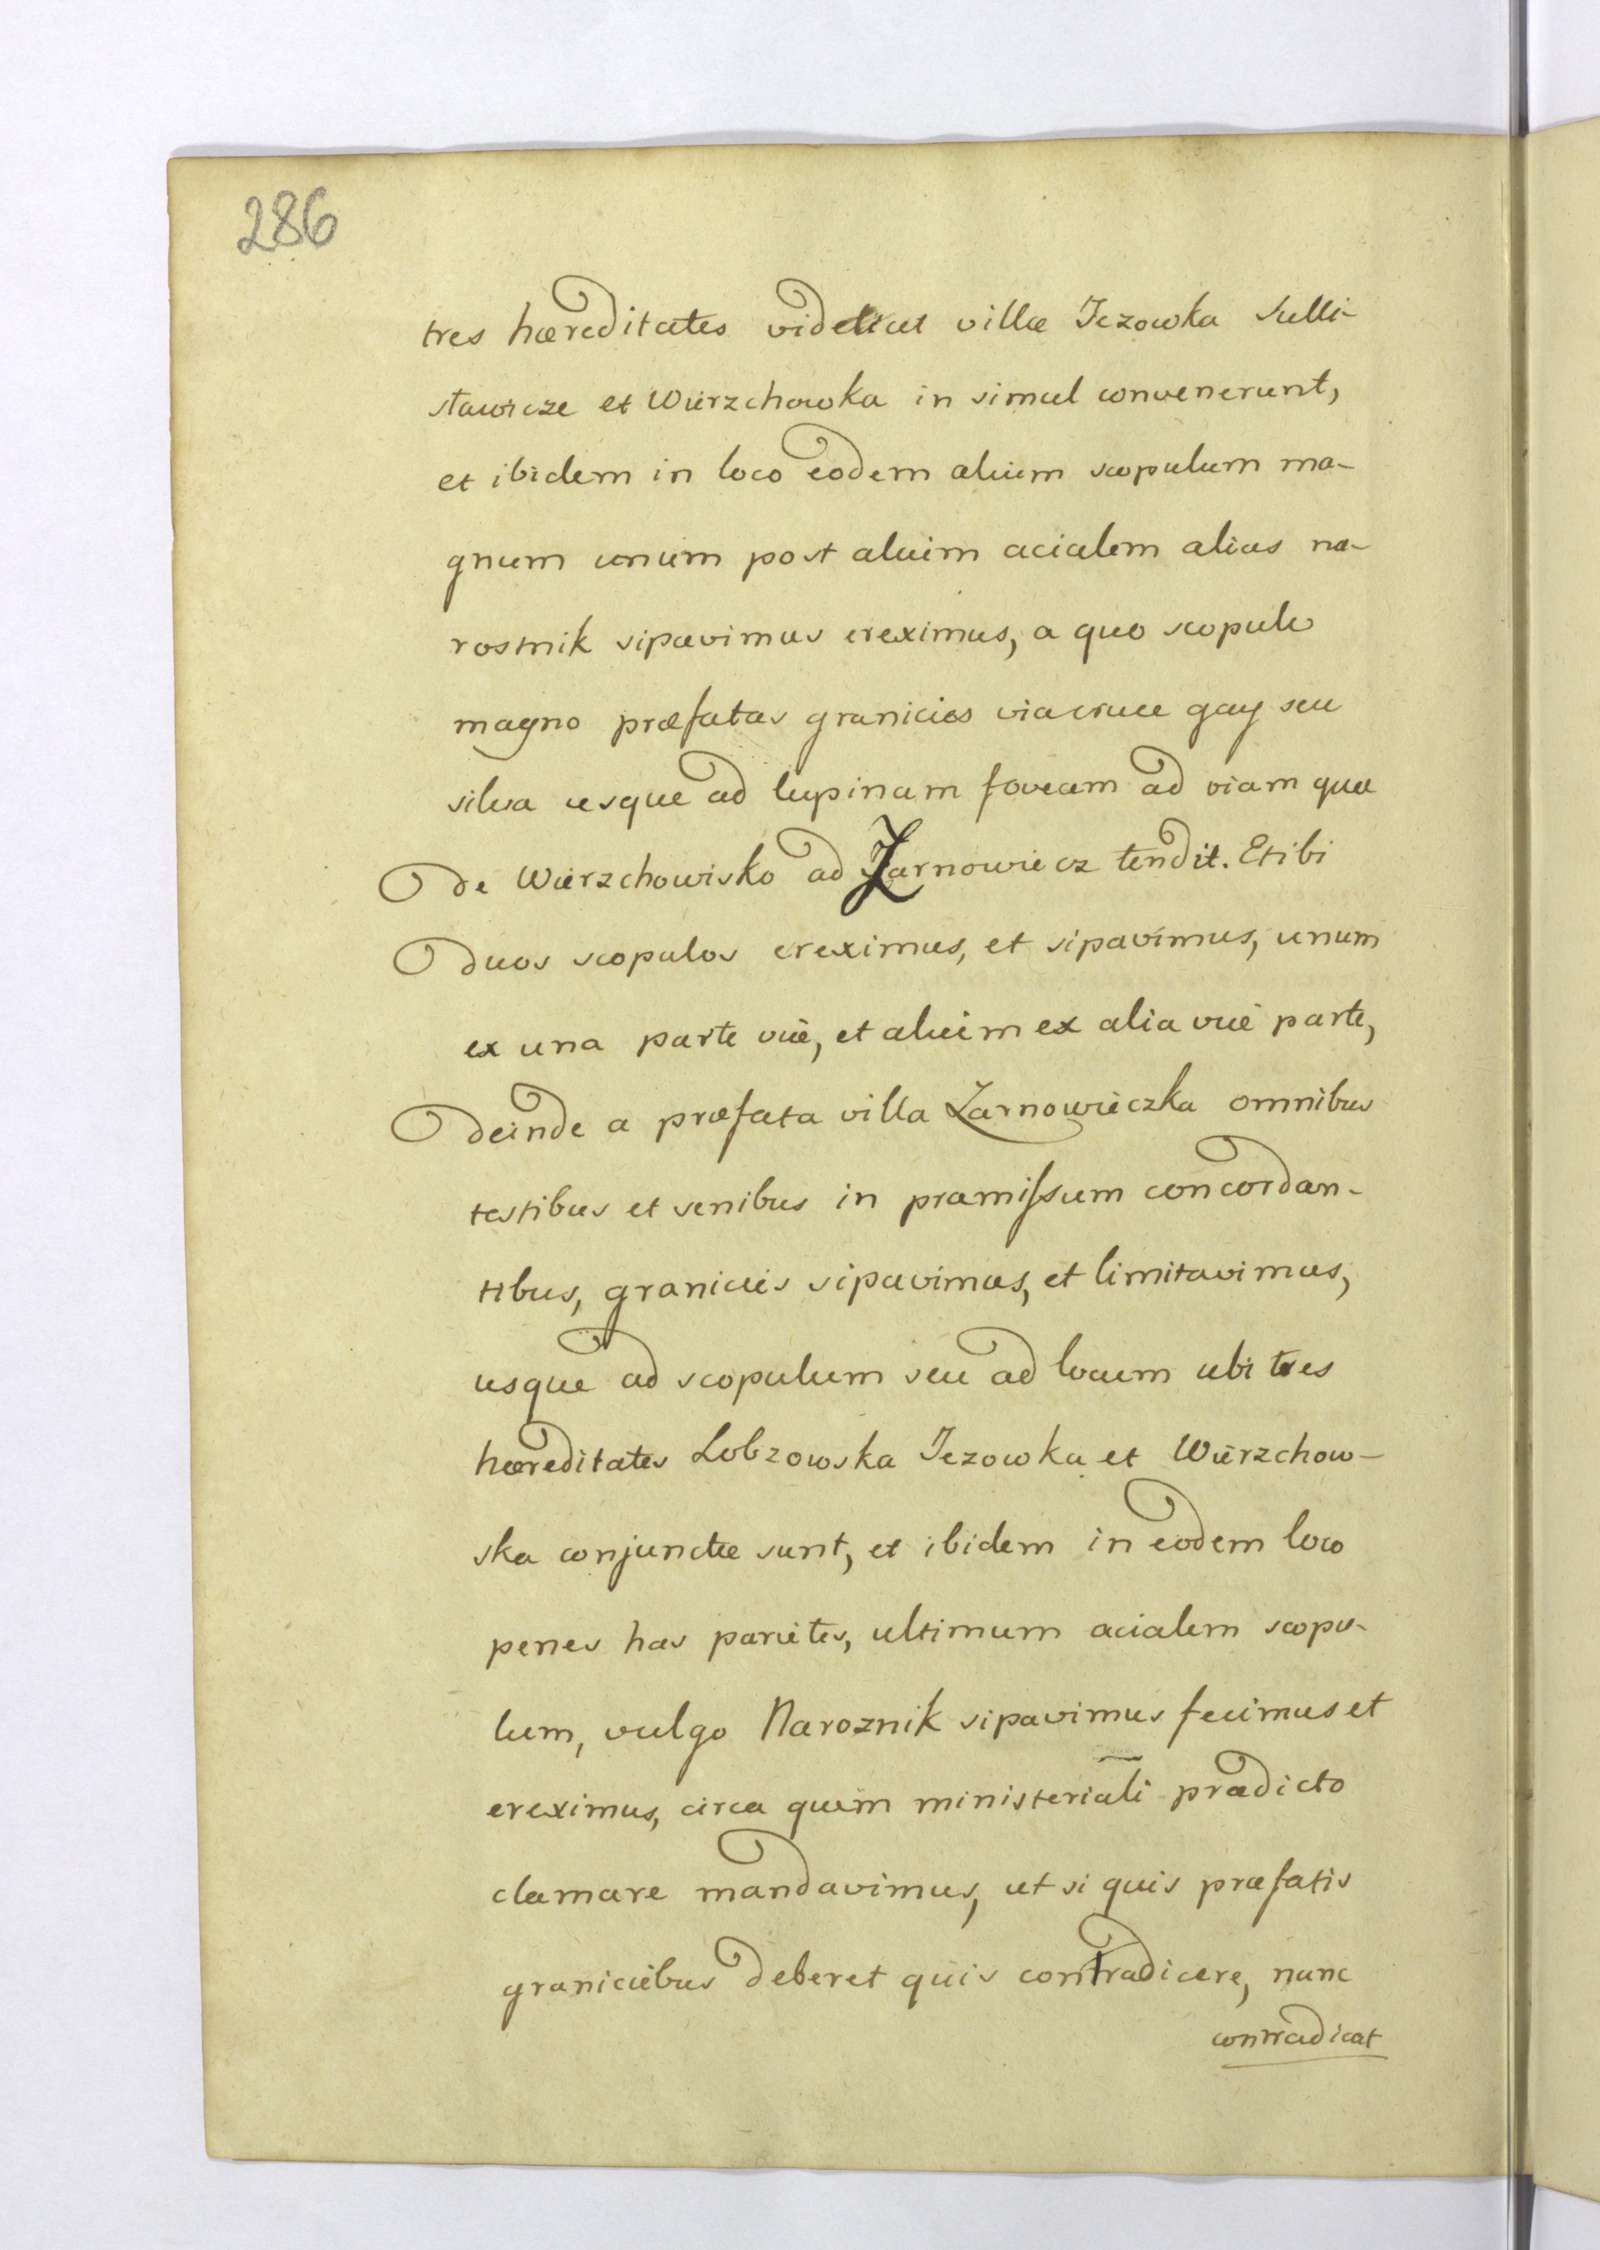 286
tres hæreditates videlicet villæ Jezowka Sulli-
sławicze et Wierzchowka in simul convenerunt,
et ibidem in loco eodem alium scopulum ma-
gnum unum post alium acialem alias na-
rostnik sipavimus ereximus, a quo scopulo
magno præfatas granicies gay seu
silva usque ad lupinam foveam ad viam quæ
de Wierzchowisko ad Zarnowiecz tendit. Et ibi
duos scopulos ereximus, et sipavimus, unum
ex una parte viæ, et alium ex alia viæ parte,
deinde a præfata villa Zarnowieczka omnibus
testibus et senibus in præmissum concordan-
tibus, granicies sipavimus, et limitavimus,
usque ad scopulum seu ad locum ubi tres
hæreditates Lobzowska Jezowka et Wierzchow-
ska conjunctæ sunt, et ibidem in eodem loco
penes has parietes, ultimum acialem scopu-
lum, vulgo Naroznik sipavimus fecimus et
ereximus, circa quem ministeriali prædicto
clamare mandavimus, ut si quis præfatis
graniciebus deberet quis contradicere, nunc
contradicat